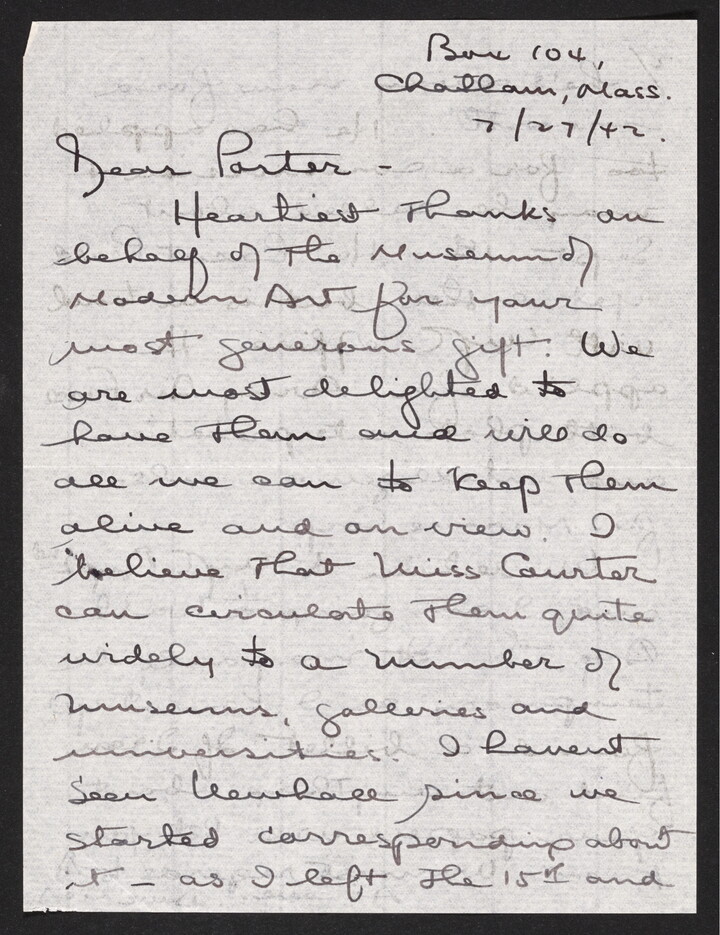 Box 104,
Chatham, Mass.
7/27/42.
Dear Porter -
Heartiest thanks on
behalf of the Museum of
Modern Art for your
most generous gift. We
are most delighted to
have them and will do
all we can to keep them
alive and on view. I
believe that Miss Courter
can circulate them quite
widely to a number of
museums, galleries and
universities. I havent
seen Newhall since we
started corresponding about
it - as I left the 15th and